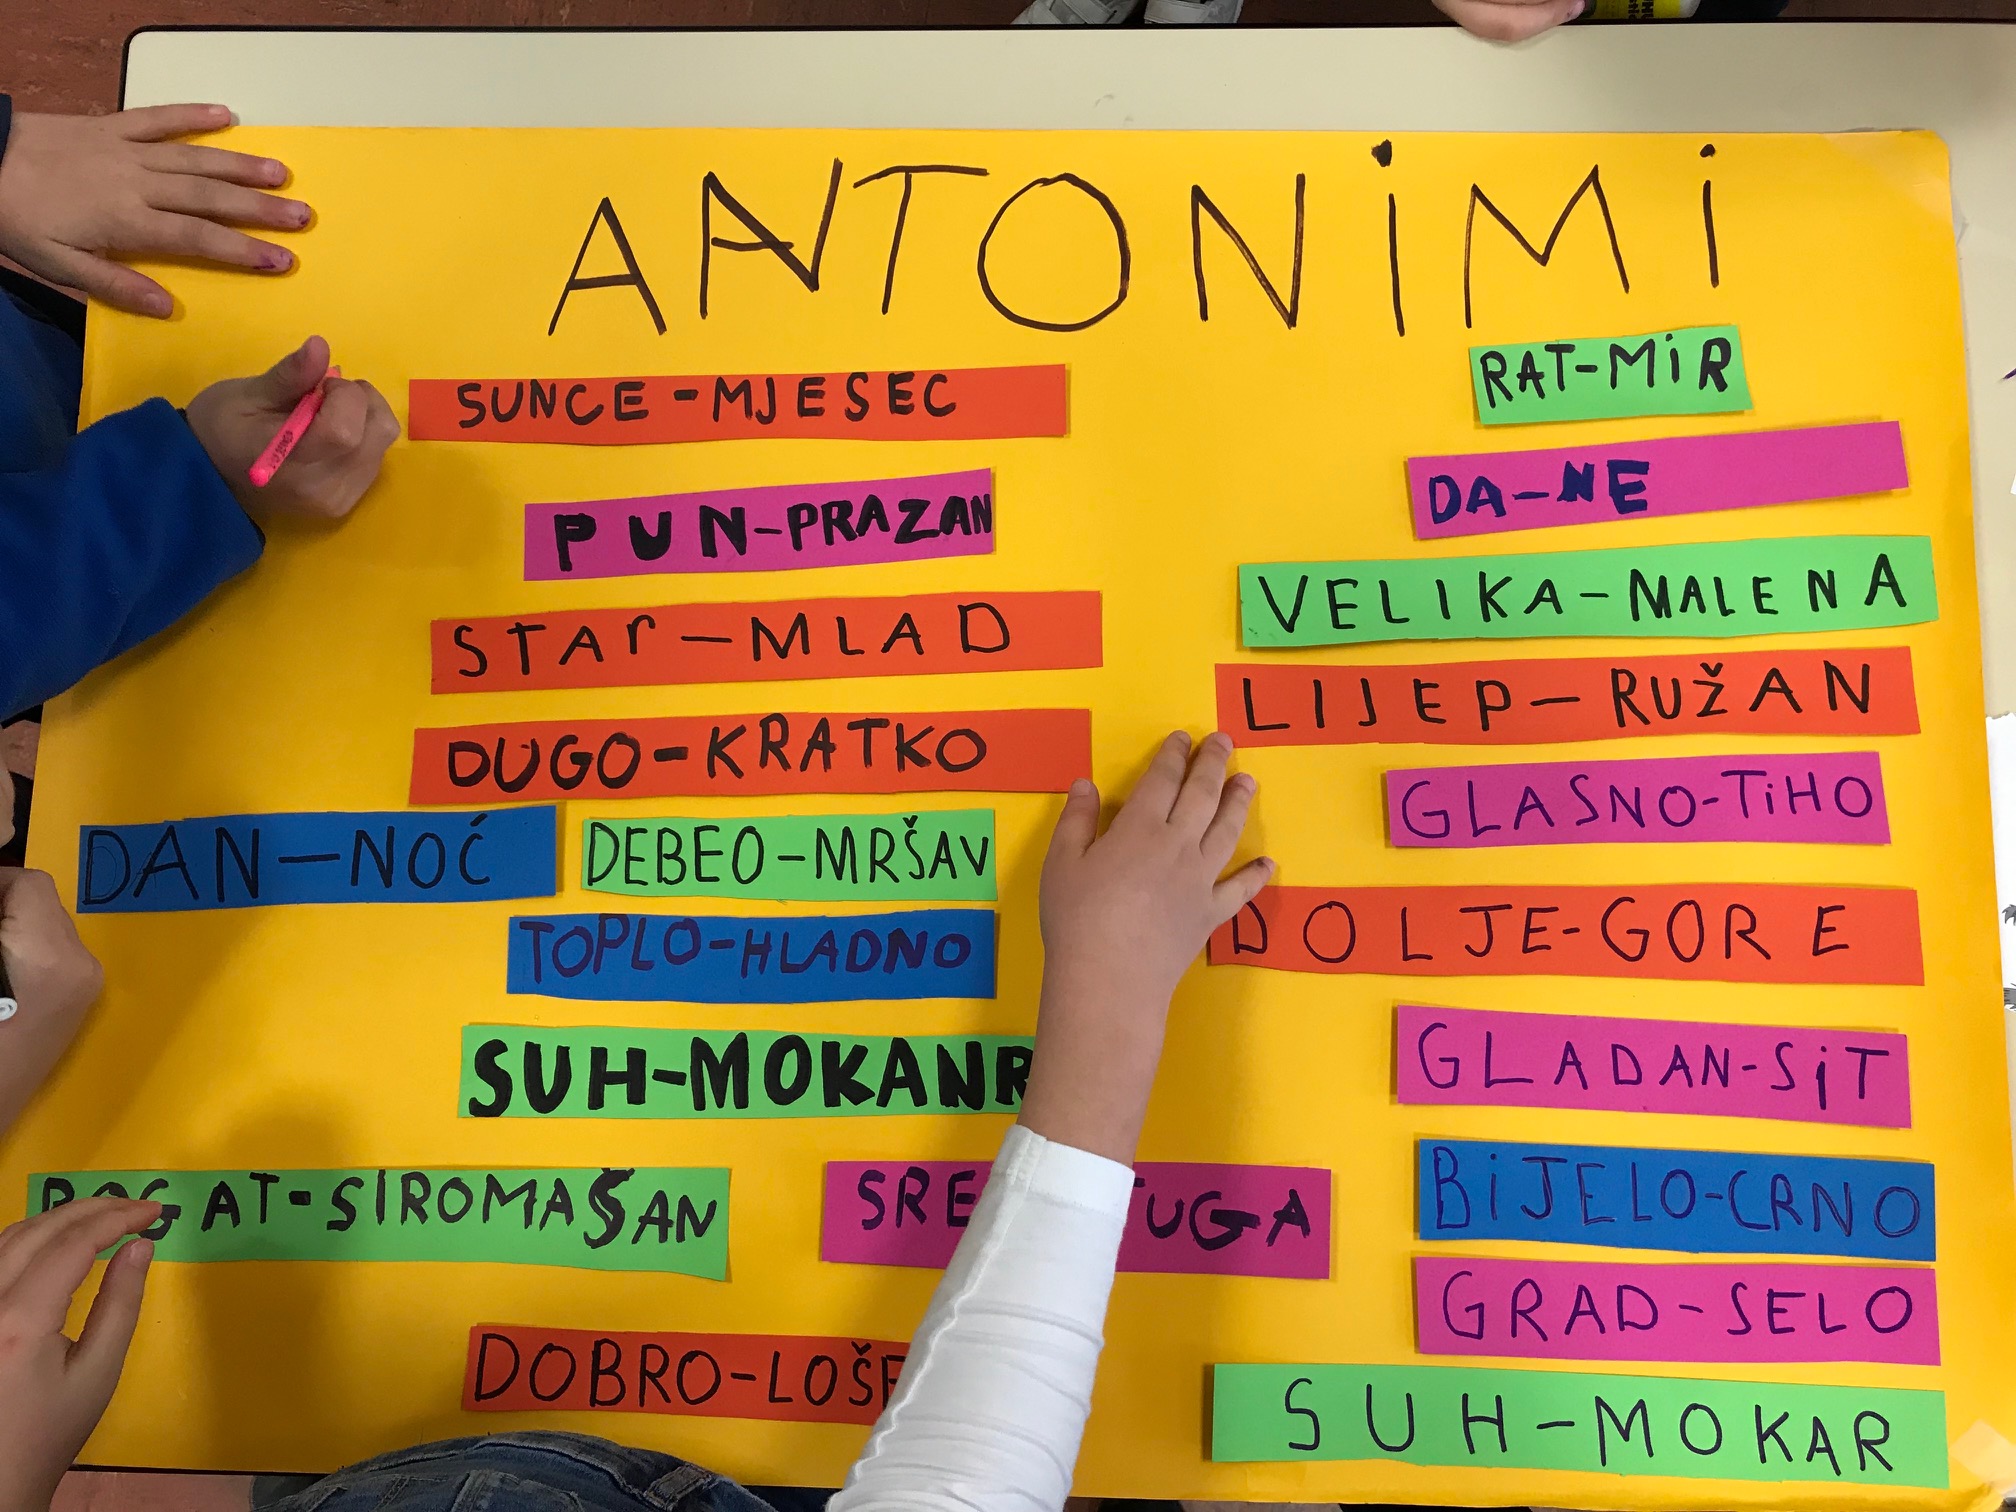 ANTONIMI
SUNCE-MJESEC
PUN-PRAZAN
STAr-MLAD
DUGO-KRATKO
DAN-NOĆ
DEBEO-MRŠAV
TOPLO-HLADNO
SUH-MOKANR
BOGAT-SIROMAŠAN
TUGA
DOBRO-LOŠE
RAT-MiR
DA-NE
VELIKA-MALENA
LIJEP-RUŽAN
GLASNO-TiHO
DOLJE-GORE
GLADAN-SiT
BiJELO-CRNO
GRAD-SELO
SUH-MOKAR